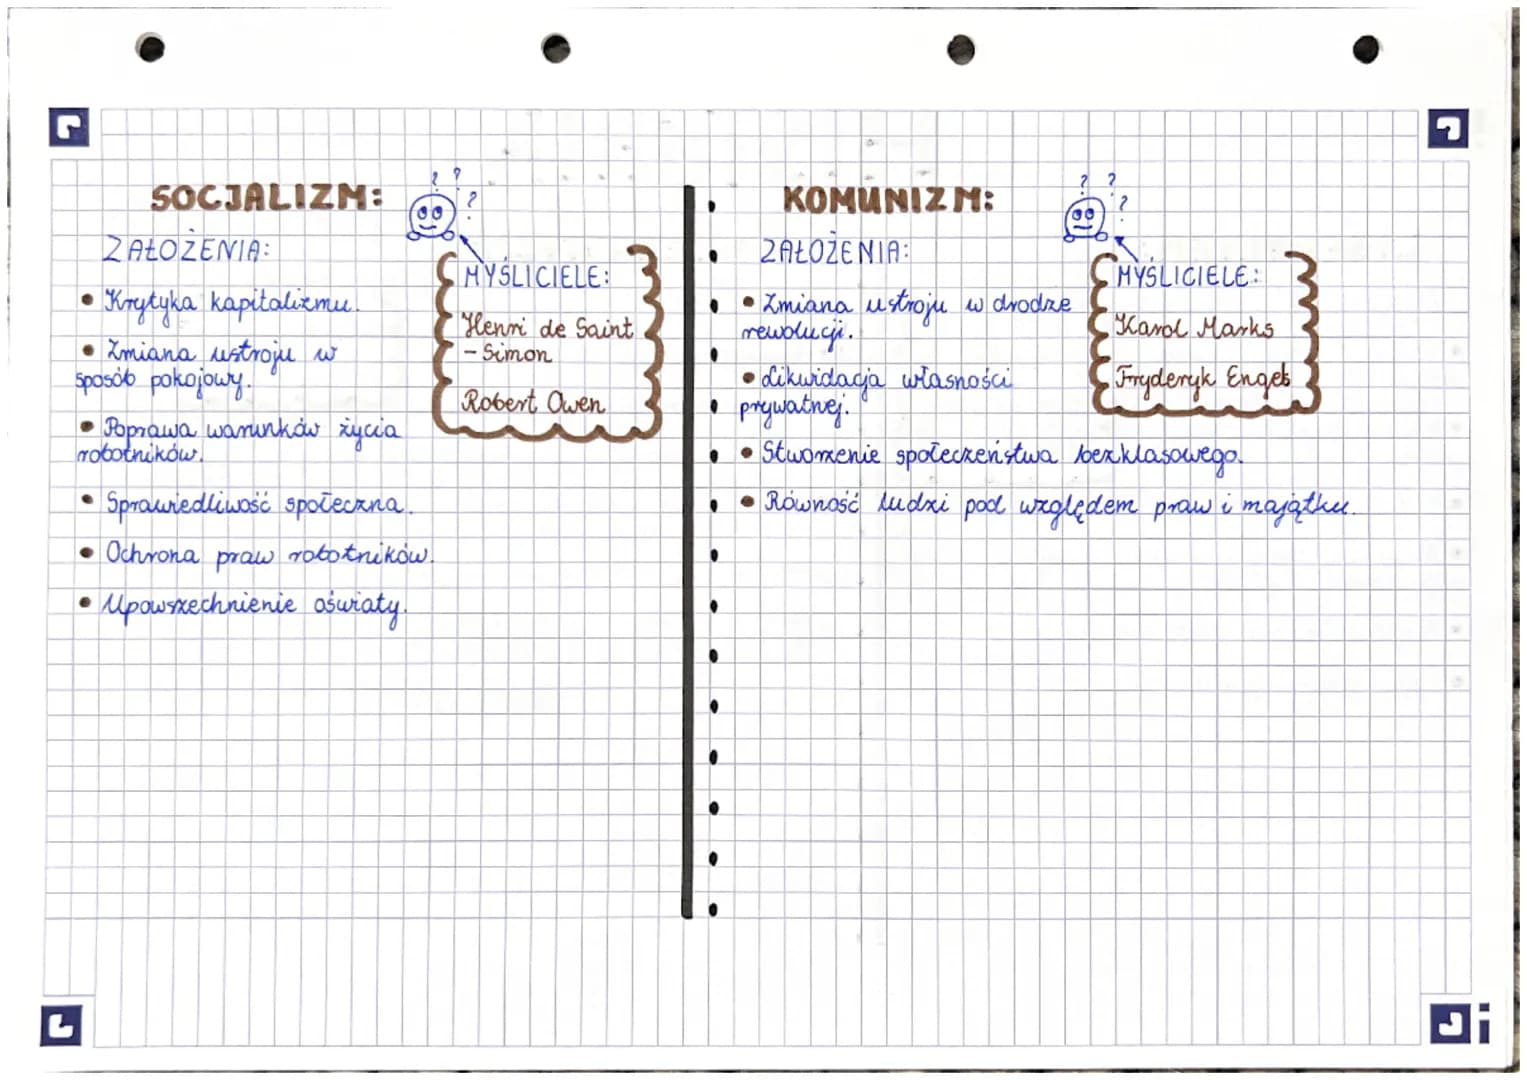 SOCJALIZM:
ZAŁOŻENIA:
• Krytyka kapitalizmu.
• Zmiana ustroju w
sposób pokojowy.
• Poprawa warunków życia
robotników.
• Sprawiedliwość społeczna.
• Ochrona praw robotników.
• Upowszechnienie oświaty.
? ? ?
MYŚLICIELE:
Henri de Saint
- Simon
Robert Owen
KOMUNIZM:
ZAŁOŻENIA:
• Zmiana ustroju w drodze
rewolucji.
• Likwidacja własności
prywatnej.
• Stworzenie społeczeństwa bezklasowego.
• Równość ludzi pod względem praw i majątku.
? ? ?
MYŚLICIELE:
Karol Marks
Fryderyk Engels